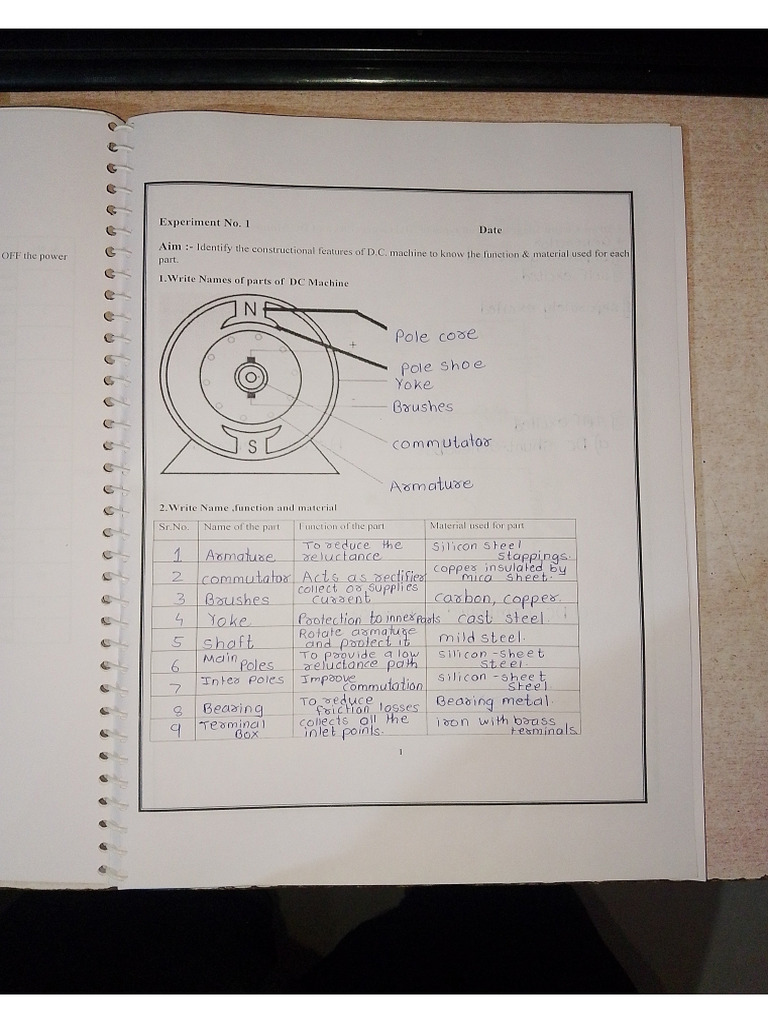 OFF the power
Experiment No. 1
Date
Aim :- Identify the constructional features of D.C. machine to know the function & material used for each
part.
1.Write Names of parts of DC Machine
N
Pole core
+
Pole shoe
Yoke
Brushes
commutator
S
Armature
2.Write Name ,function and material
Sr.No. Name of the part Function of the part Material used for part
1 Armature To reduce the reluctance silicon steel stappings.
2 commutator Acts as rectifier copper insulated by mica sheet.
3 Brushes collect or supplies current carbon, copper.
4 Yoke Protection to inner parts cast steel.
5 shaft Rotate armature and protect it mild steel.
6 Main Poles To provide a low reluctance path silicon-sheet steel.
7 Inter Poles Improve commutation silicon-sheet steel.
8 Bearing To reduce friction losses Bearing metal.
9 Terminal Box collects all the inlet points. iron with brass terminals
1